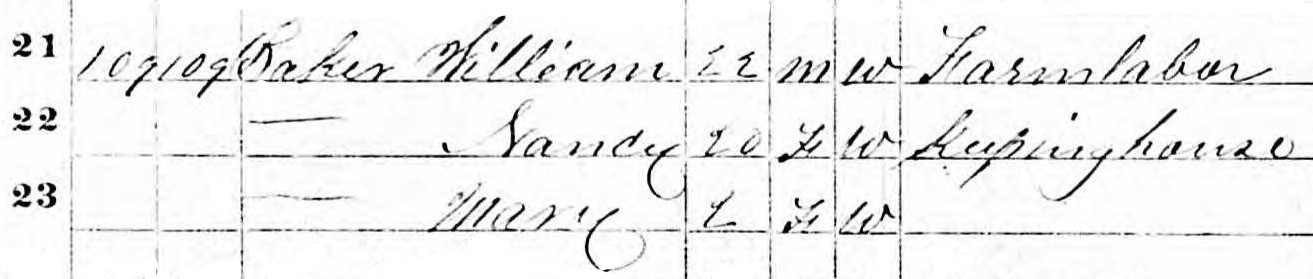 21 109 109 Baker William 22 M W Farm labor
22 — Nancy 20 F W Keeping house
23 — Mary 2 F W